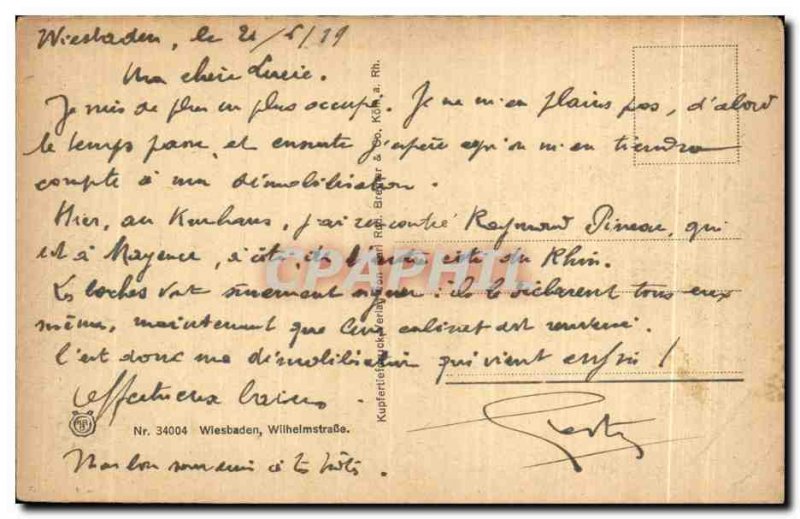 Wiesbaden, le 21/6/19
Ma chère Lucie.
Je suis de plus en plus occupé. Je ne m'en plains pas, d'abord
le temps passe, et ensuite j'espère qu'on m'en tiendra
compte à ma démobilisation.
Hier, au Kurhaus, j'ai rencontré Raymond Pineau, qui
est à Mayence, à côté, de l'autre côté du Rhin.
Les boches vont sûrement signer : ils le déclarent tous eux
même, maintenant que leur cabinet est renversé.
C'est donc ma démobilisation qui vient enfin !
Affectueux baisers
Mon bon souvenir à tes
Nr. 34004 Wiesbaden, Wilhelmstraße.
Kupfertiefdruck, Verlag von Carl Rud. Bremer & Co. Köln a. Rh.
CPAPHIL